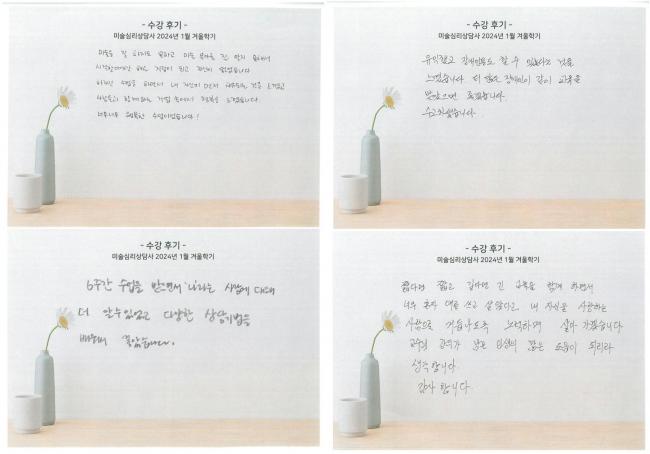 - 수강 후기 -
미술심리상담사 2024년 1월 겨울학기
미술을 잘 하지도 못하고 미술 분야를 잘 알지 못해서
시작하기에 걱정이 되고 자신이 없었습니다
하지만 수업을 하면서 내 자신이 먼저 치유되는 것을 느꼈고
사람들과 함께하는 기쁨 속에서 행복을 느꼈습니다.
너무너무 행복한 수업이었습니다!
- 수강 후기 -
미술심리상담사 2024년 1월 겨울학기
유익했고 장애인들도 할 수 있다라는 것을
느꼈습니다 더 많은 장애인이 같이 교육을
받았으면 좋겠습니다.
수고하셨습니다.
- 수강 후기 -
미술심리상담사 2024년 1월 겨울학기
6주간 수업을 받으면서 '나'라는 사람에 대해
더 알 수 있었고 다양한 상담기법을
배워서 좋았습니다.
- 수강 후기 -
미술심리상담사 2024년 1월 겨울학기
짧다면 짧고 길다면 긴 교육을 함께 하면서
너무 혼자 애를 쓰고 살았다고. 내 자신을 사랑하는
사람으로 거듭나도록 노력하며 살아 가겠습니다
교수님 강의가 남은 인생의 많은 도움이 되리라
생각합니다.
감사 합니다.